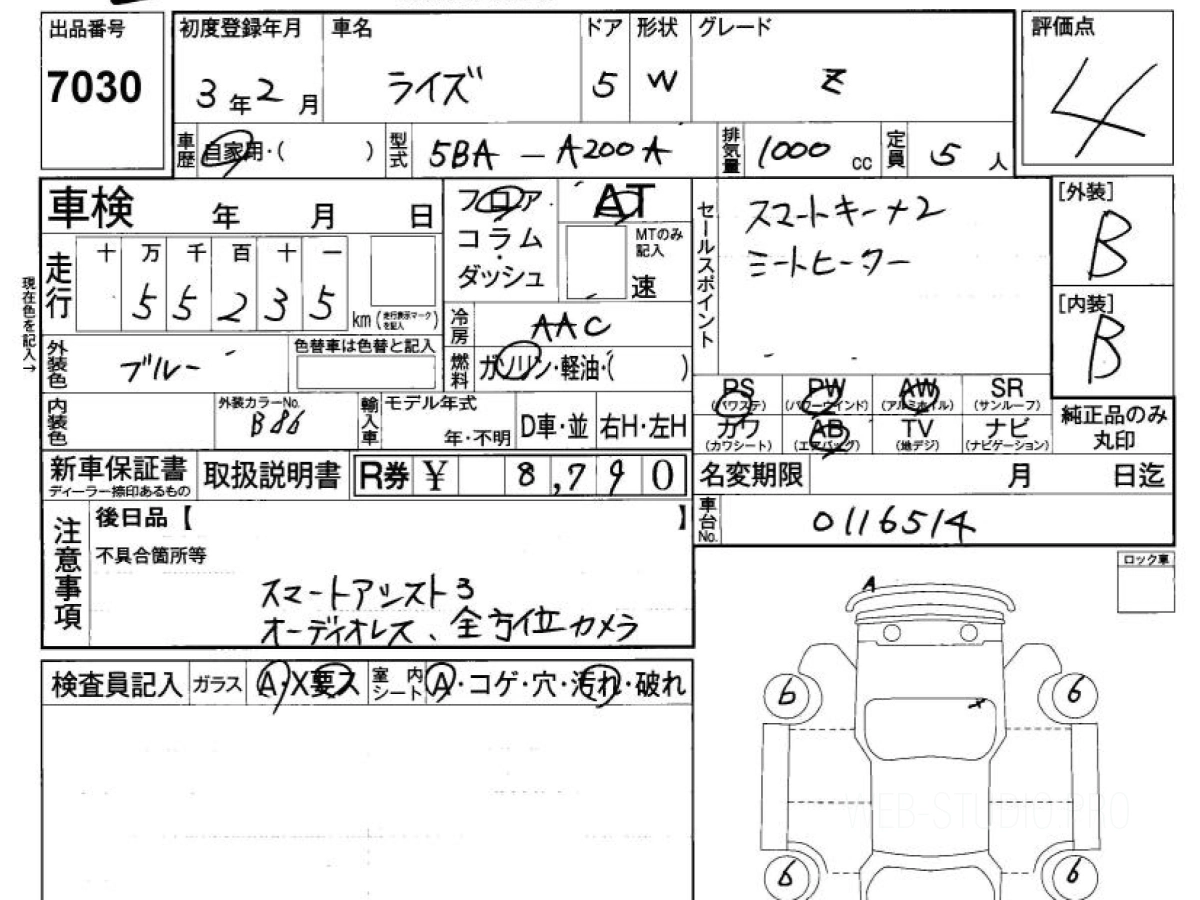 出品番号 初度登録年月 車名 ドア 形状 グレード 評価点
7030 3年2月 ライズ 5 W Z 4
車歴 自家用・( ) 型式 5BA-A200A 排気量 1000cc 定員 5人
車検 年 月 日 フロア AT セールスポイント スマートキー×2 [外装]
コラム・ MTのみ記入 シートヒーター B
ダッシュ 速
走行 十 万 千 百 十 一
5 5 2 3 5 km (走行表示マークを記入)
現在色を記入→
冷房 AAC [内装]
B
外装色 ブルー 色替車は色替と記入 燃料 ガソリン・軽油・( )
PS (パワステ) PW (パワーウインド) AW (アルミホイル) SR (サンルーフ)
内装色 外装カラーNo. B86 輸入車 モデル年式 年・不明 D車・並 右H・左H
カワ (カワシート) AB (エアバッグ) TV (地デジ) ナビ (ナビゲーション) 純正品のみ丸印
新車保証書 ディーラー捺印あるもの 取扱説明書 R券 ¥ 8,790 名変期限 月 日迄
注意事項 後日品【 】 車台No. 0116514
不具合箇所等
スマートアシスト3
オーディオレス、全方位カメラ
ロック車
A
検査員記入 ガラス A・X要ス 室内シート A・コゲ・穴・汚れ・破れ
6 6
×
WEB-STUDIO.PRO
6 6